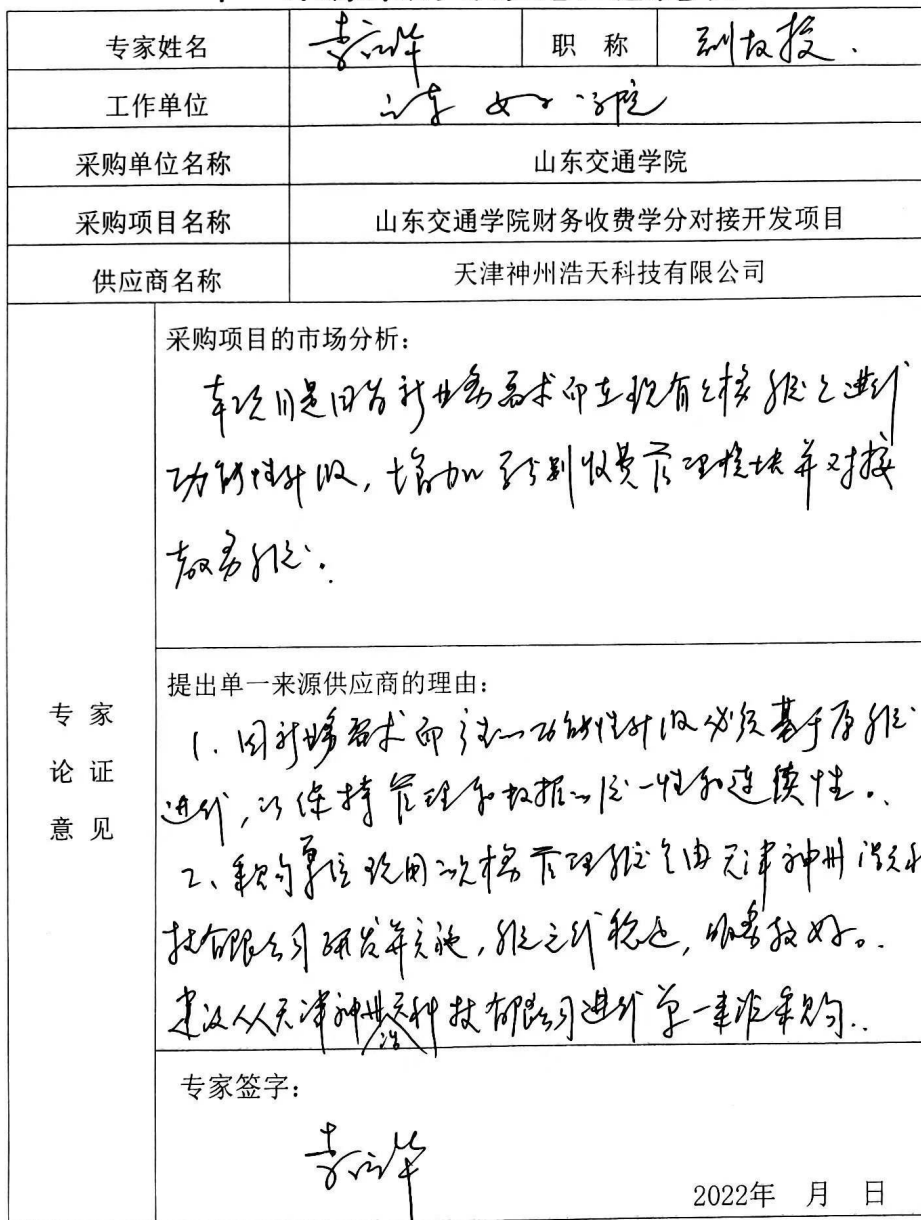 专家姓名 职 称 副教授.
工作单位 山东 学院
采购单位名称 山东交通学院
采购项目名称 山东交通学院财务收费学分对接开发项目
供应商名称 天津神州浩天科技有限公司
专 家
论 证
意 见
采购项目的市场分析：
本项目是因为新业务需求而在现有 系统上进行
功能性升级, 增加 收费管理模块并对接
教务系统.
提出单一来源供应商的理由：
1. 因新业务需求而 的功能性升级必须基于原系统
进行, 以保持管理和数据的统一性和连续性.
2、采购单位现用的 管理系统 由天津神州浩天科
技有限公司研发并实施, 系统运行稳定, 服务较好。
建议从天津神州浩天科技有限公司进行单一来源采购.
专家签字：
2022年 月 日